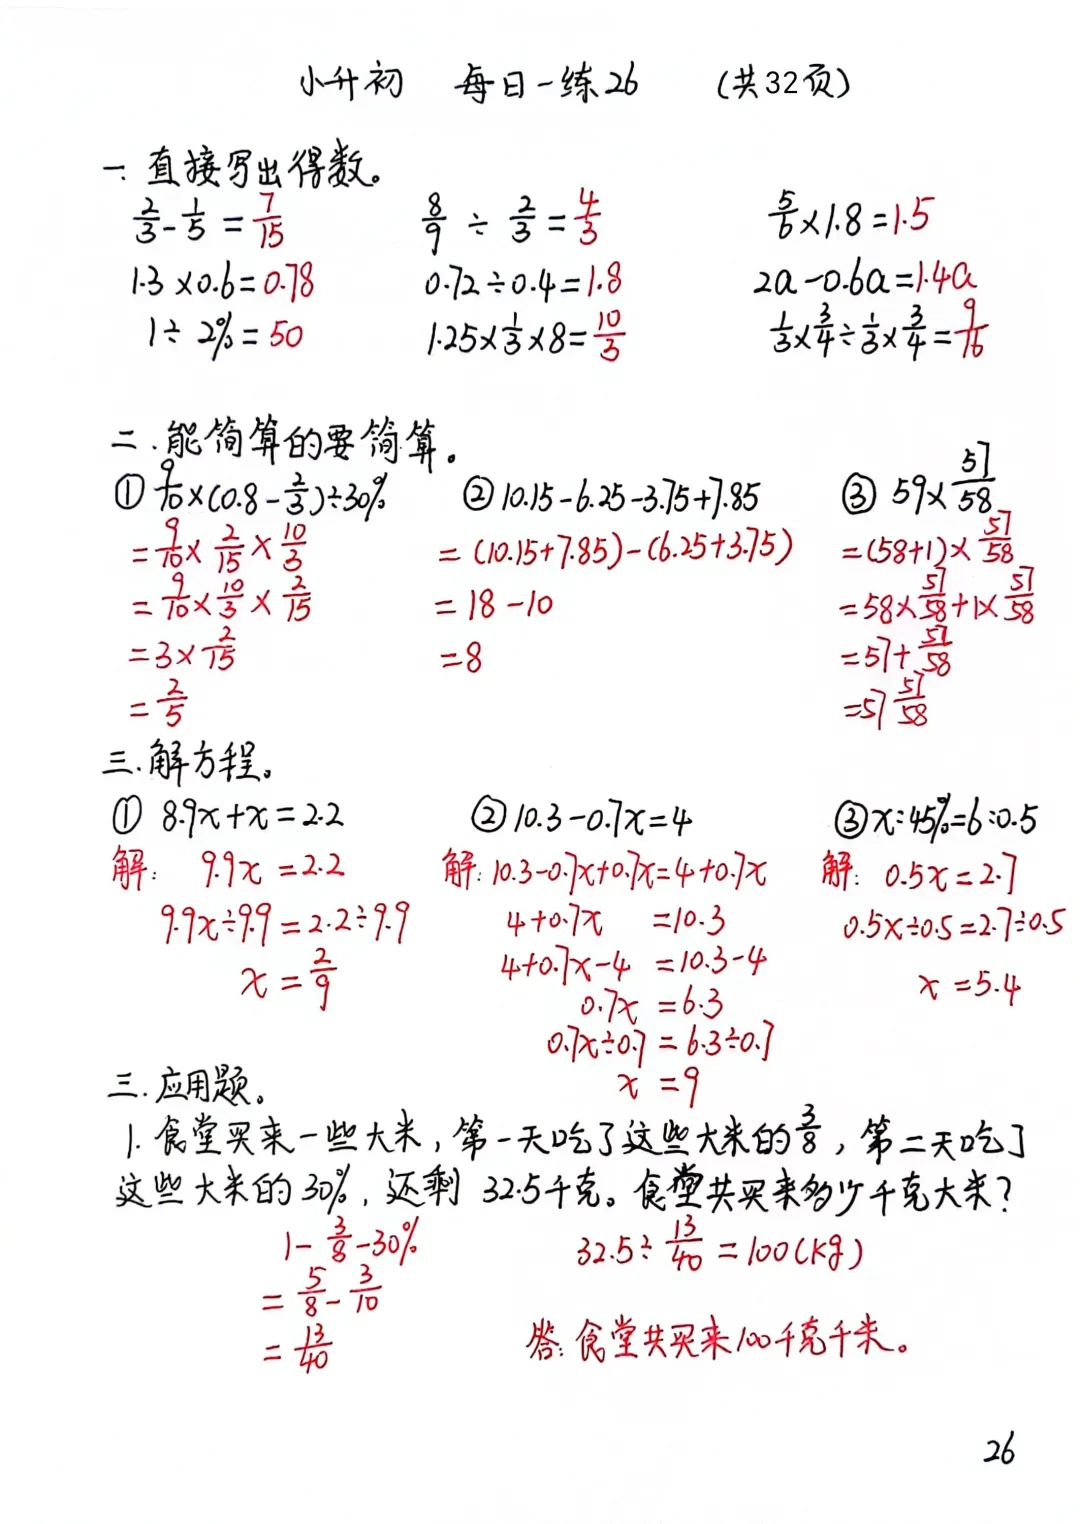 小升初 每日一练26 (共32页)
一.直接写出得数。
2/3-1/5=7/15 8/9÷2/3=4/3 5/6×1.8=1.5
1.3×0.6=0.78 0.72÷0.4=1.8 2a-0.6a=1.4a
1÷2%=50 1.25×1/3×8=10/3 1/3×3/4÷1/3×3/4=9/16
二.能简算的要简算。
①9/10×(0.8-2/3)÷30% ②10.15-6.25-3.75+7.85 ③59×57/58
=9/10×2/15×10/3 =(10.15+7.85)-(6.25+3.75) =(58+1)×57/58
=9/10×10/3×2/15 =18-10 =58×57/58+1×57/58
=3×2/15 =8 =57+57/58
=2/5 =57 57/58
三.解方程。
①8.9x+x=2.2 ②10.3-0.7x=4 ③x:45%=6:0.5
解: 9.9x=2.2 解:10.3-0.7x+0.7x=4+0.7x 解: 0.5x=2.7
9.9x÷9.9=2.2÷9.9 4+0.7x=10.3 0.5x÷0.5=2.7÷0.5
x=2/9 4+0.7x-4=10.3-4 x=5.4
0.7x=6.3
0.7x÷0.7=6.3÷0.7
x=9
三.应用题。
1.食堂买来一些大米,第一天吃了这些大米的3/8,第二天吃了
这些大米的30%,还剩32.5千克。食堂共买来多少千克大米?
1-3/8-30% 32.5÷13/40=100(kg)
=5/8-3/10
=13/40 答:食堂共买来100千克千米。
26